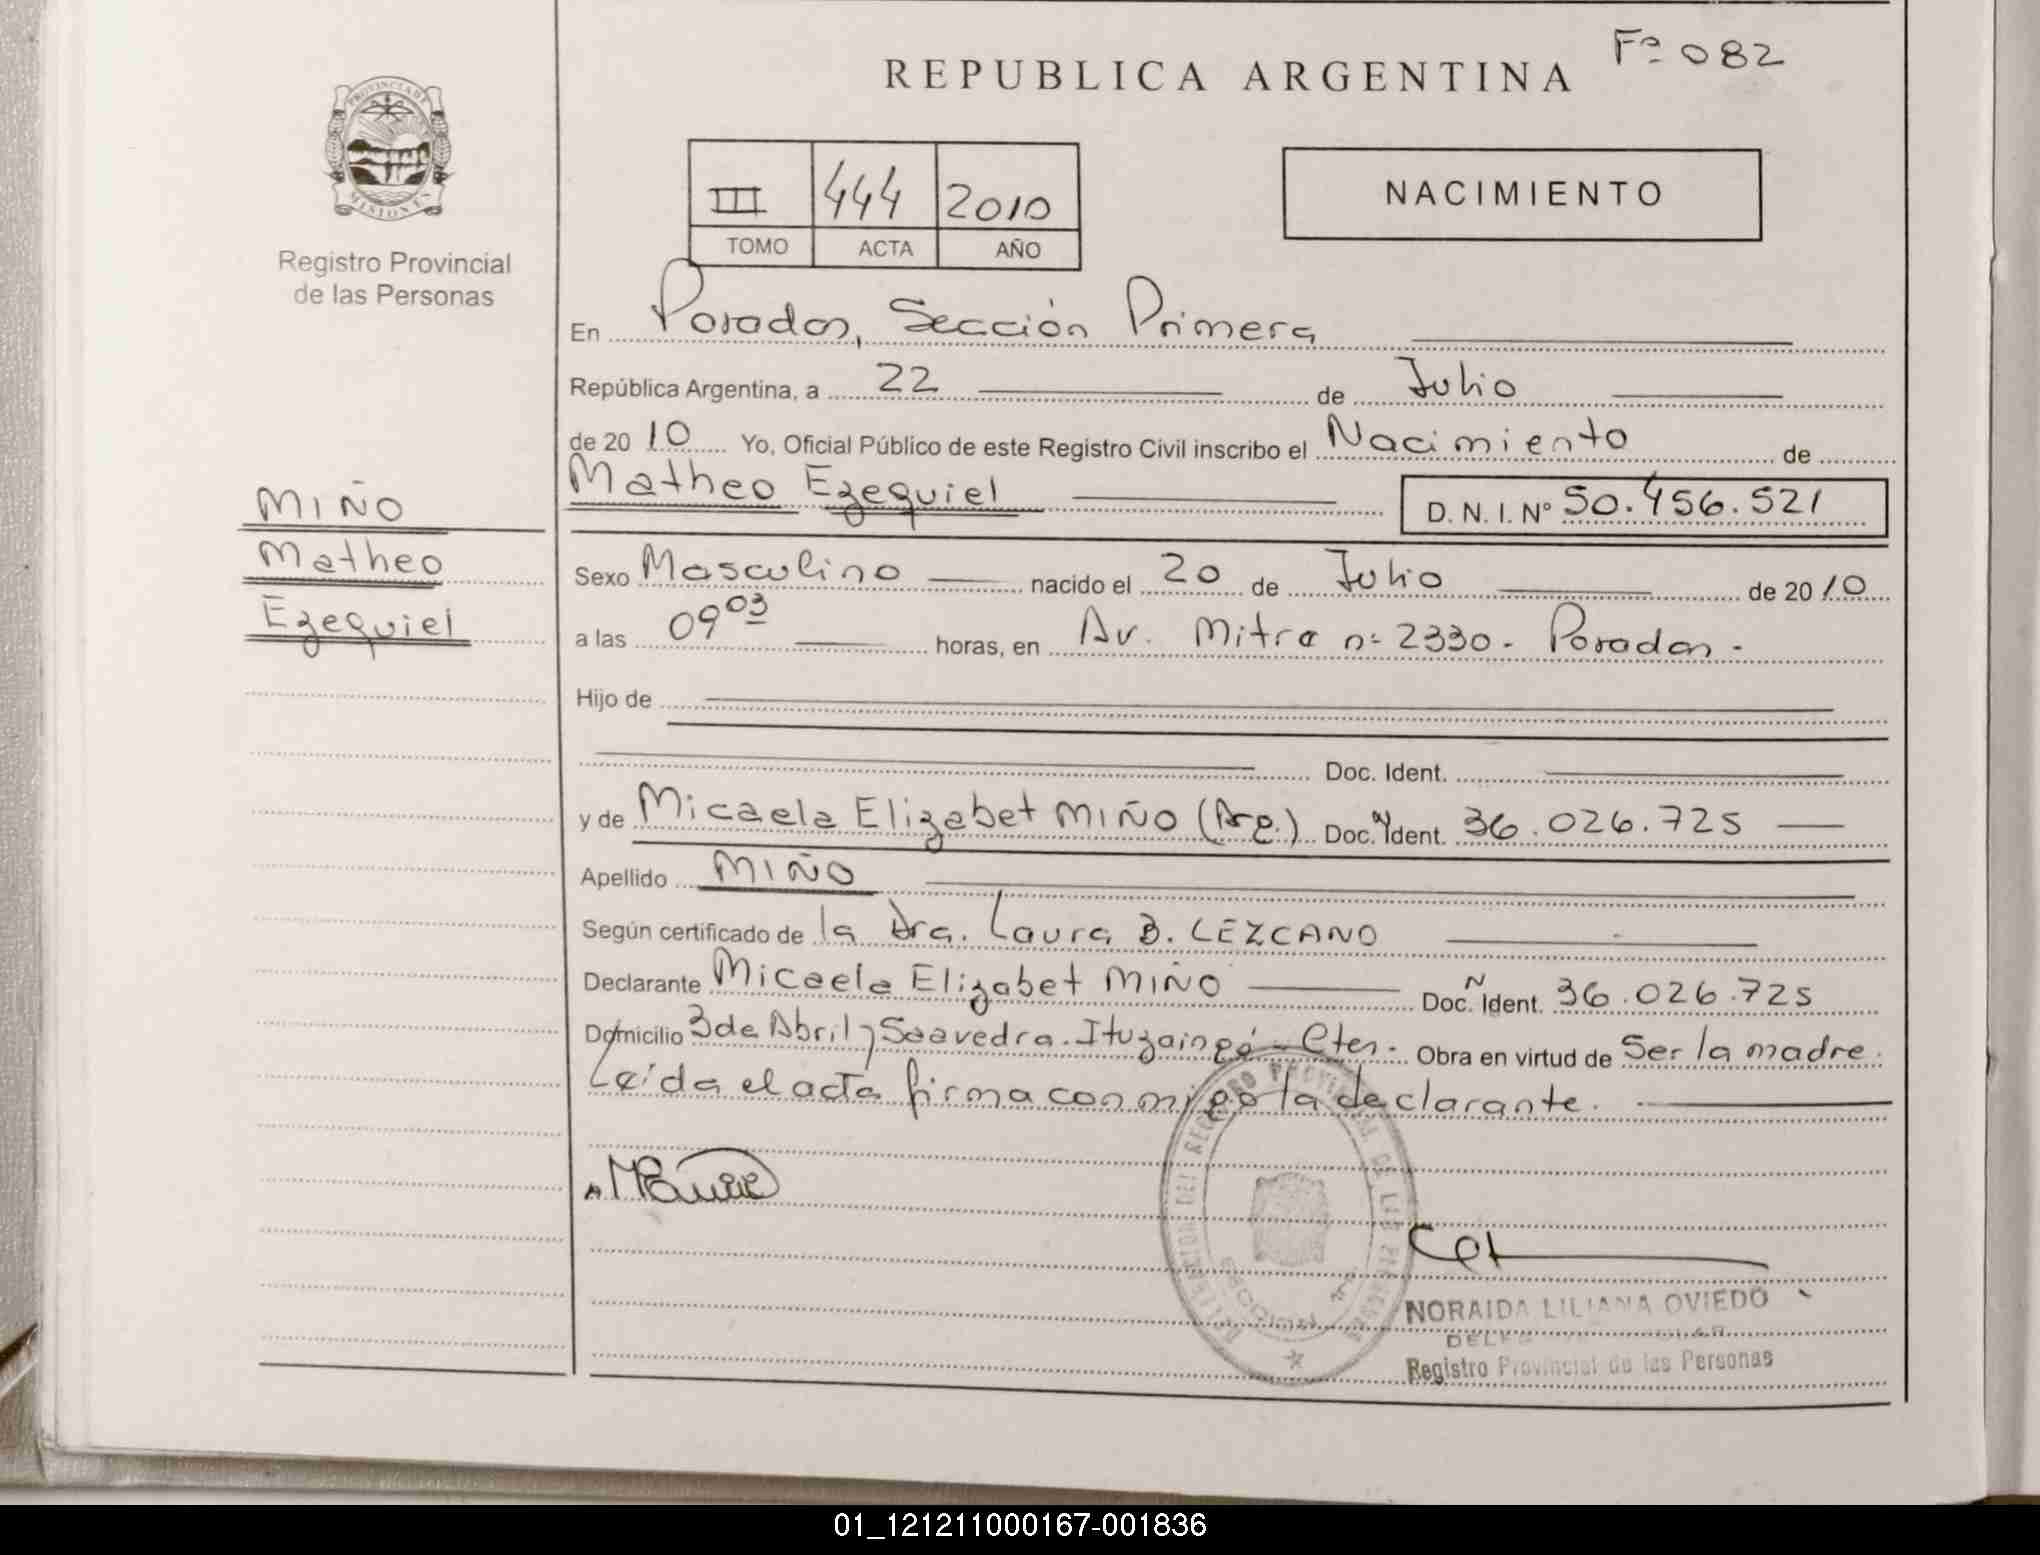 Fº 082
REPUBLICA ARGENTINA
PROVINCIA DE
MISIONES
Registro Provincial
de las Personas
III 444 2010
TOMO ACTA AÑO
NACIMIENTO
En Posadas, Sección Primera
República Argentina, a 22 de Julio
de 2010 Yo, Oficial Público de este Registro Civil inscribo el Nacimiento de
Matheo Ezequiel D.N.I. Nº 50.456.521
MIÑO
Matheo
Ezequiel
Sexo Masculino nacido el 20 de Julio de 2010
a las 09 03 horas, en Av. Mitre nº 2330 - Posadas -
Hijo de
Doc. Ident.
y de Micaela Elizabet MIÑO (Arg.) Doc. Ident. 36.026.725
Apellido MIÑO
Según certificado de la Dra. Laura B. LEZCANO
Declarante Micaela Elizabet MIÑO Doc. Ident. 36.026.725
Domicilio 3 de Abril y Saavedra. Ituzaingó - Ctes. Obra en virtud de Ser la madre.
Leída el acta firma conmigo la declarante.
NORAIDA LILIANA OVIEDO
Registro Provincial de las Personas
01_121211000167-001836